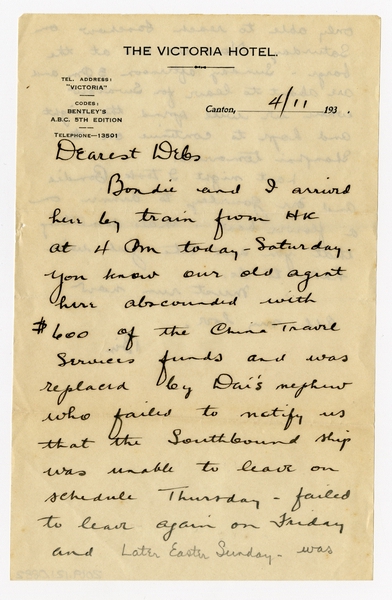 THE VICTORIA HOTEL.
TEL. ADDRESS:
"VICTORIA"
CODES:
BENTLEY'S
A.B.C. 5TH EDITION
TELEPHONE—13501
Canton, 4/11 193 .
Dearest Debs
Bondie and I arrived
here by train from HK
at 4 PM today - Saturday.
You know our old agent
here absconded with
$600 of the China Travel
Services funds and was
replaced by Dai's nephew
who failed to notify us
that the Southbound ship
was unable to leave on
schedule Thursday - failed
to leave again on Friday
and Later Easter Sunday - was